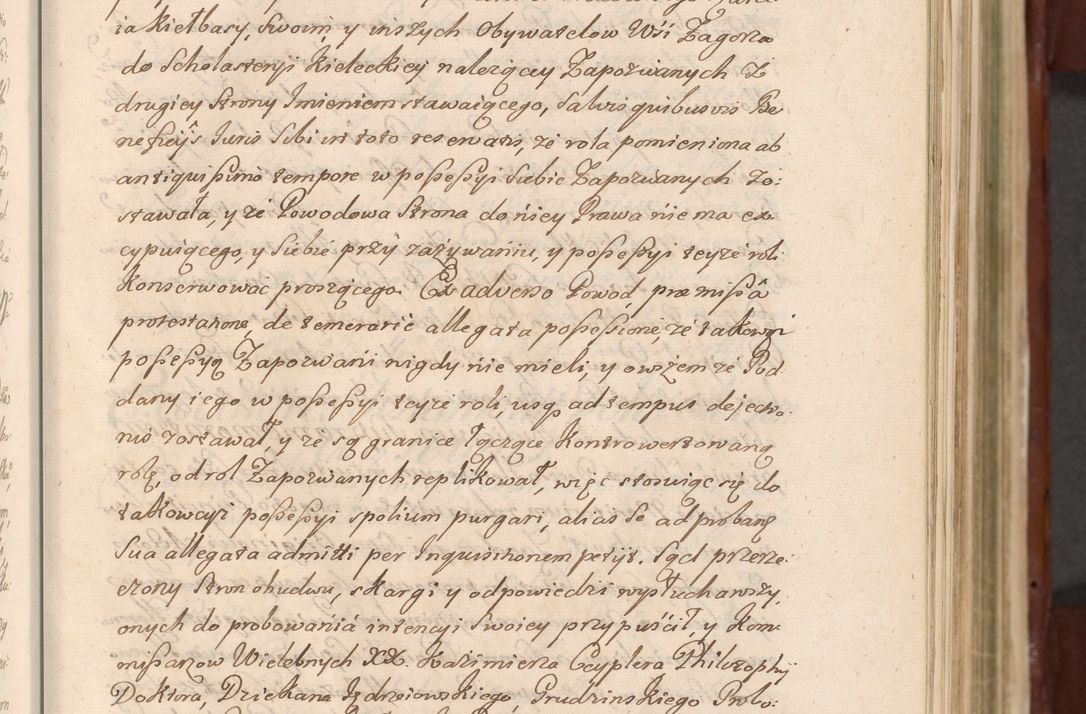 ia Kiełbasy, Swoim, y inszych Obywatelow Wśi Zagorza
do Scholasteryi Kieleckiey nalezącey Zapozwanych Z
drugiey Strony Imieniem stawaiącego, Salvis quibusvis Be
neficijs Iuris Sibi in toto reservatis, ze rola pomieniona ab
antiquissimo tempore w possessyi Siebie Zapozwanych zo-
stawała, y ze Powodowa Strona do niey Prawa nie ma ex
cypuiącego, y Siebie przy zazywaniu, y possessyi teyze roli
Konserwować proszącego. Ex adverso Powod, præmissâ
protestatione, de temerarie allegata possessione, ze takowei
possessyą Zapozwani nigdy nie mieli, y owszem ze Pod
dany iego w possessyi teyze roli, usq ad tempus dejectio-
nis zostawał, y ze są granice łączące Kontrowertowaną
rolę, od rol Zapozwanych replikował, więc stosuiąc się do
takowcyi possessyi spolium purgari, alias se ad probanda
Sua allegata admitti per Inquisitionem petijt. Sąd przerze-
czony Stron obudwu, skargi y odpowiedzi wysłuchawszy,
onych do probowania intencyi Swoiey przypuścił, y Kom-
missarzow Wielebnych XX. Kazimierza Ceyplera Philosophij
Doktora, Dziekana Jędrzeiowskiego, Grudzinskiego Probo-